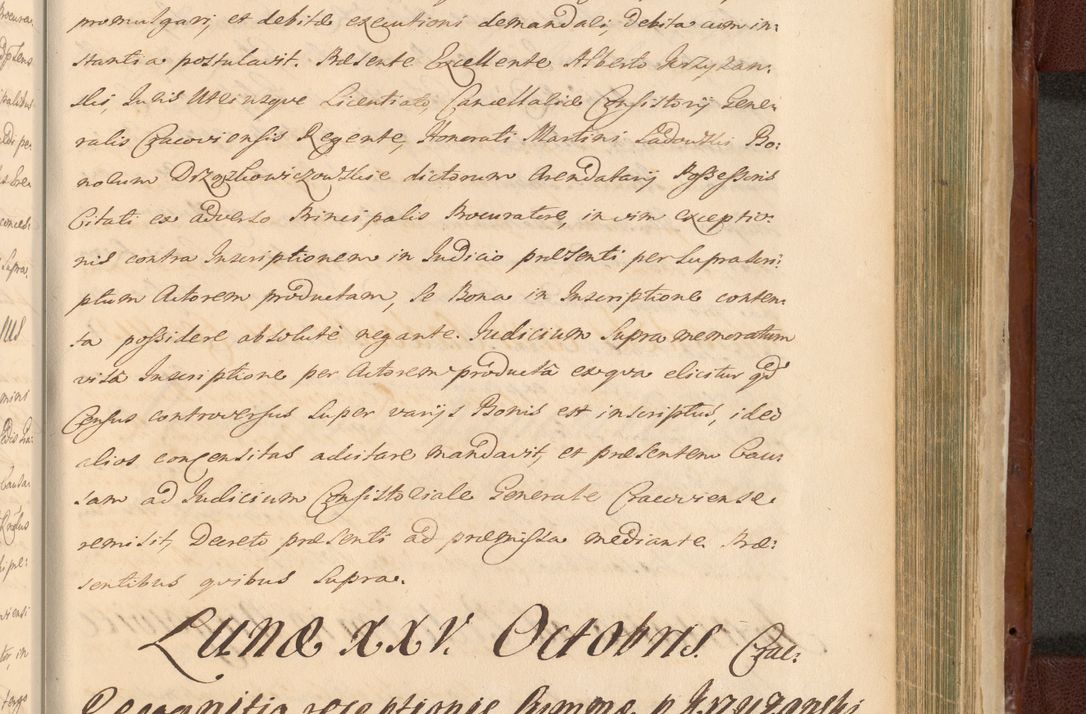 promulgari, et debitæ executioni demandari, debita cum in:
stantia postulavit. Præsente Excellente Alberto Jrzyzan:
ski, Juris Utriusque Licentiato, Cancellariæ Consistorij Gene:
ralis Cracoviensis Regente, Honorati Martini Ladowski Bo:
norum Drzązkowiczowskie dictorum Arendatarij Possessoris
Citati ex adverso Principalis Procuratore, in vim exceptio
nis contra Inscriptionem in Judicio præsenti per suprascri:
ptum Actorem productam, se Bona in Inscriptione conten:
ta possidere absolutè negante. Judicium supra memoratum
visâ Inscriptione per Actorem productâ ex qua elicitur qđ
Census controversus super varijs Bonis est inscriptus, ideo
alios concensitas adcitare mandavit, et præsentem Cau
sam ad Judicium Consistoriale Generale Cracoviense
remisit, Decreto præsenti ad præmissa mediante. Præ:
sentibus quibus supra.
Lunæ XXV. Octobris. Crac:
Recognitio receptionis summæ p Jrzyzanski